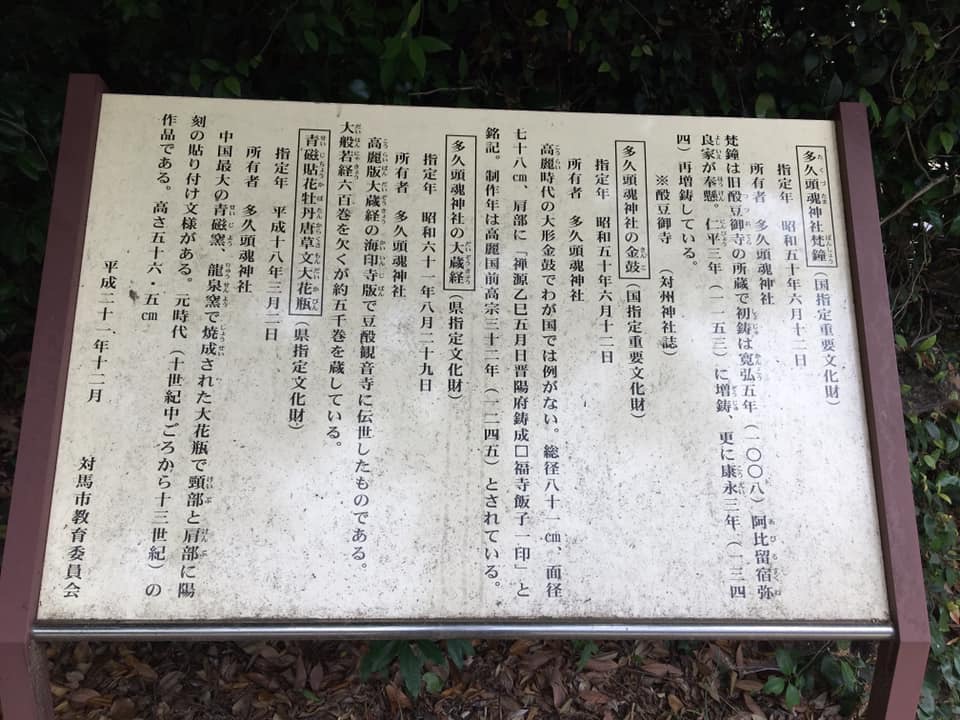 多久頭魂神社梵鐘（国指定重要文化財）
指定年　昭和五十年六月十二日
所有者　多久頭魂神社
梵鐘は旧酘豆御寺の所蔵で初鋳は寛弘五年（一〇〇八）阿比留宿弥
良家が奉懸。仁平三年（一一五三）に増鋳、更に康永三年（一三四
四）再増鋳している。　（対州神社誌）
※酘豆御寺
多久頭魂神社の金鼓（国指定重要文化財）
指定年　昭和五十年六月十二日
所有者　多久頭魂神社
高麗時代の大形金鼓でわが国では例がない。総径八十一㎝、面径
七十八㎝、肩部に「禅源乙巳五月日晋陽府鋳成□福寺飯子一印」と
銘記。制作年は高麗国前高宗三十二年（一二四五）とされている。
多久頭魂神社の大蔵経（県指定文化財）
指定年　昭和六十一年八月二十九日
所有者　多久頭魂神社
高麗版大蔵経の海印寺版で豆酘観音寺に伝世したものである。
大般若経六百巻を欠くが約五千巻を蔵している。
青磁貼花牡丹唐草文大花瓶（県指定文化財）
指定年　平成十八年三月二日
所有者　多久頭魂神社
中国最大の青磁窯、龍泉窯で焼成された大花瓶で頸部と肩部に陽
刻の貼り付け文様がある。元時代（十世紀中ごろから十三世紀）の
作品である。　高さ五十六・五㎝
平成二十一年十二月
対馬市教育委員会